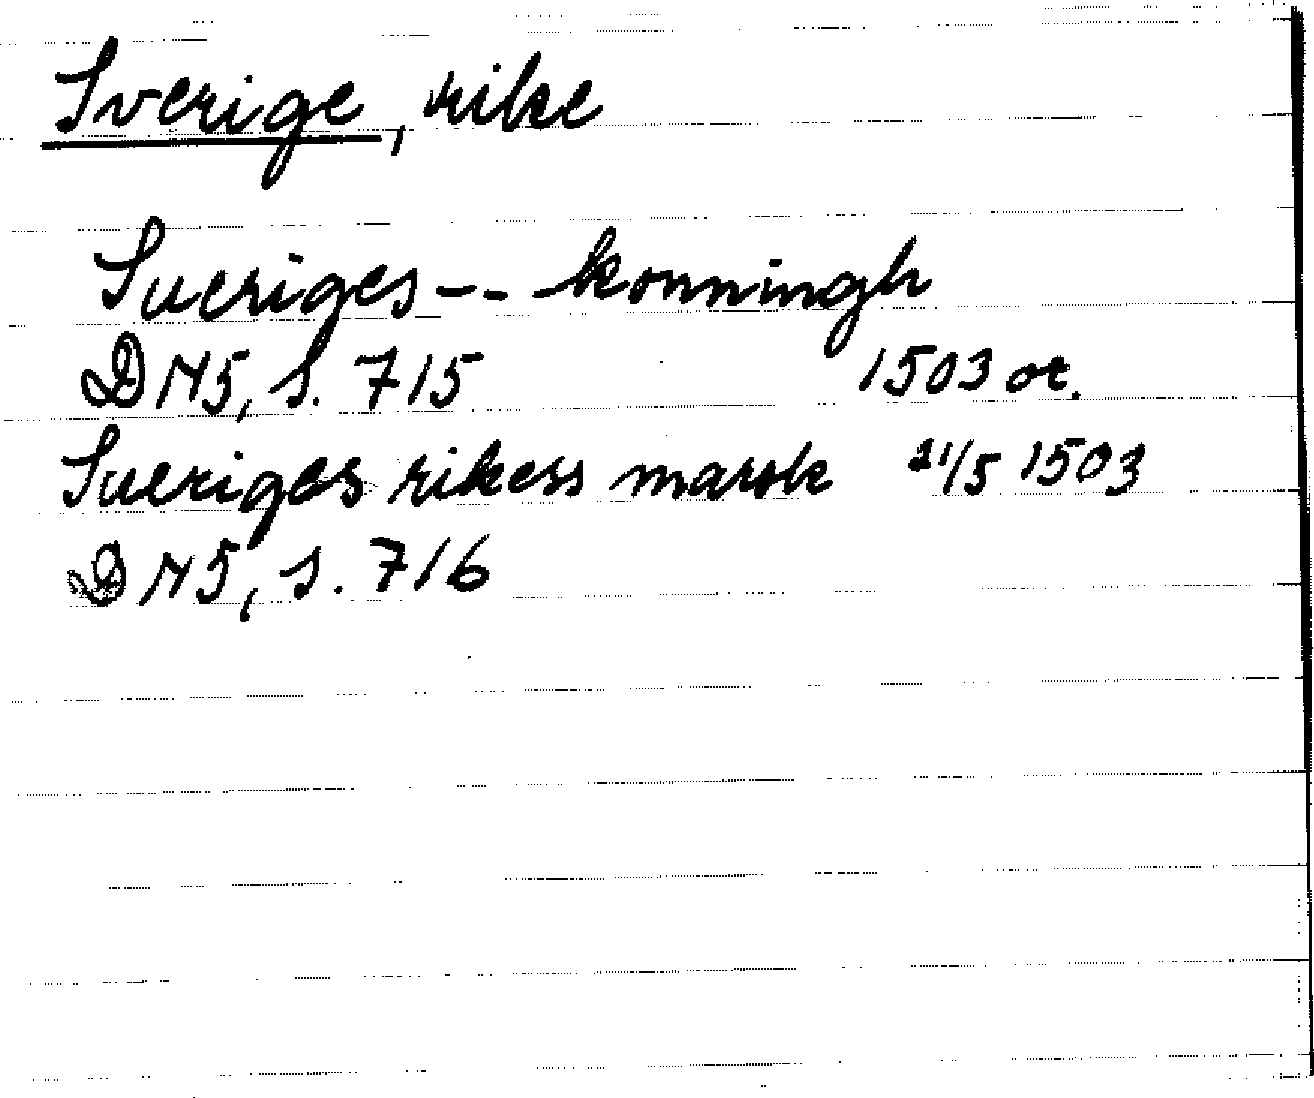 Sverige, rike
Sueriges -- - konningh
DN5, s. 715 1503 or.
Sueriges rikess marsk 21/5 1503
DN5, s. 716